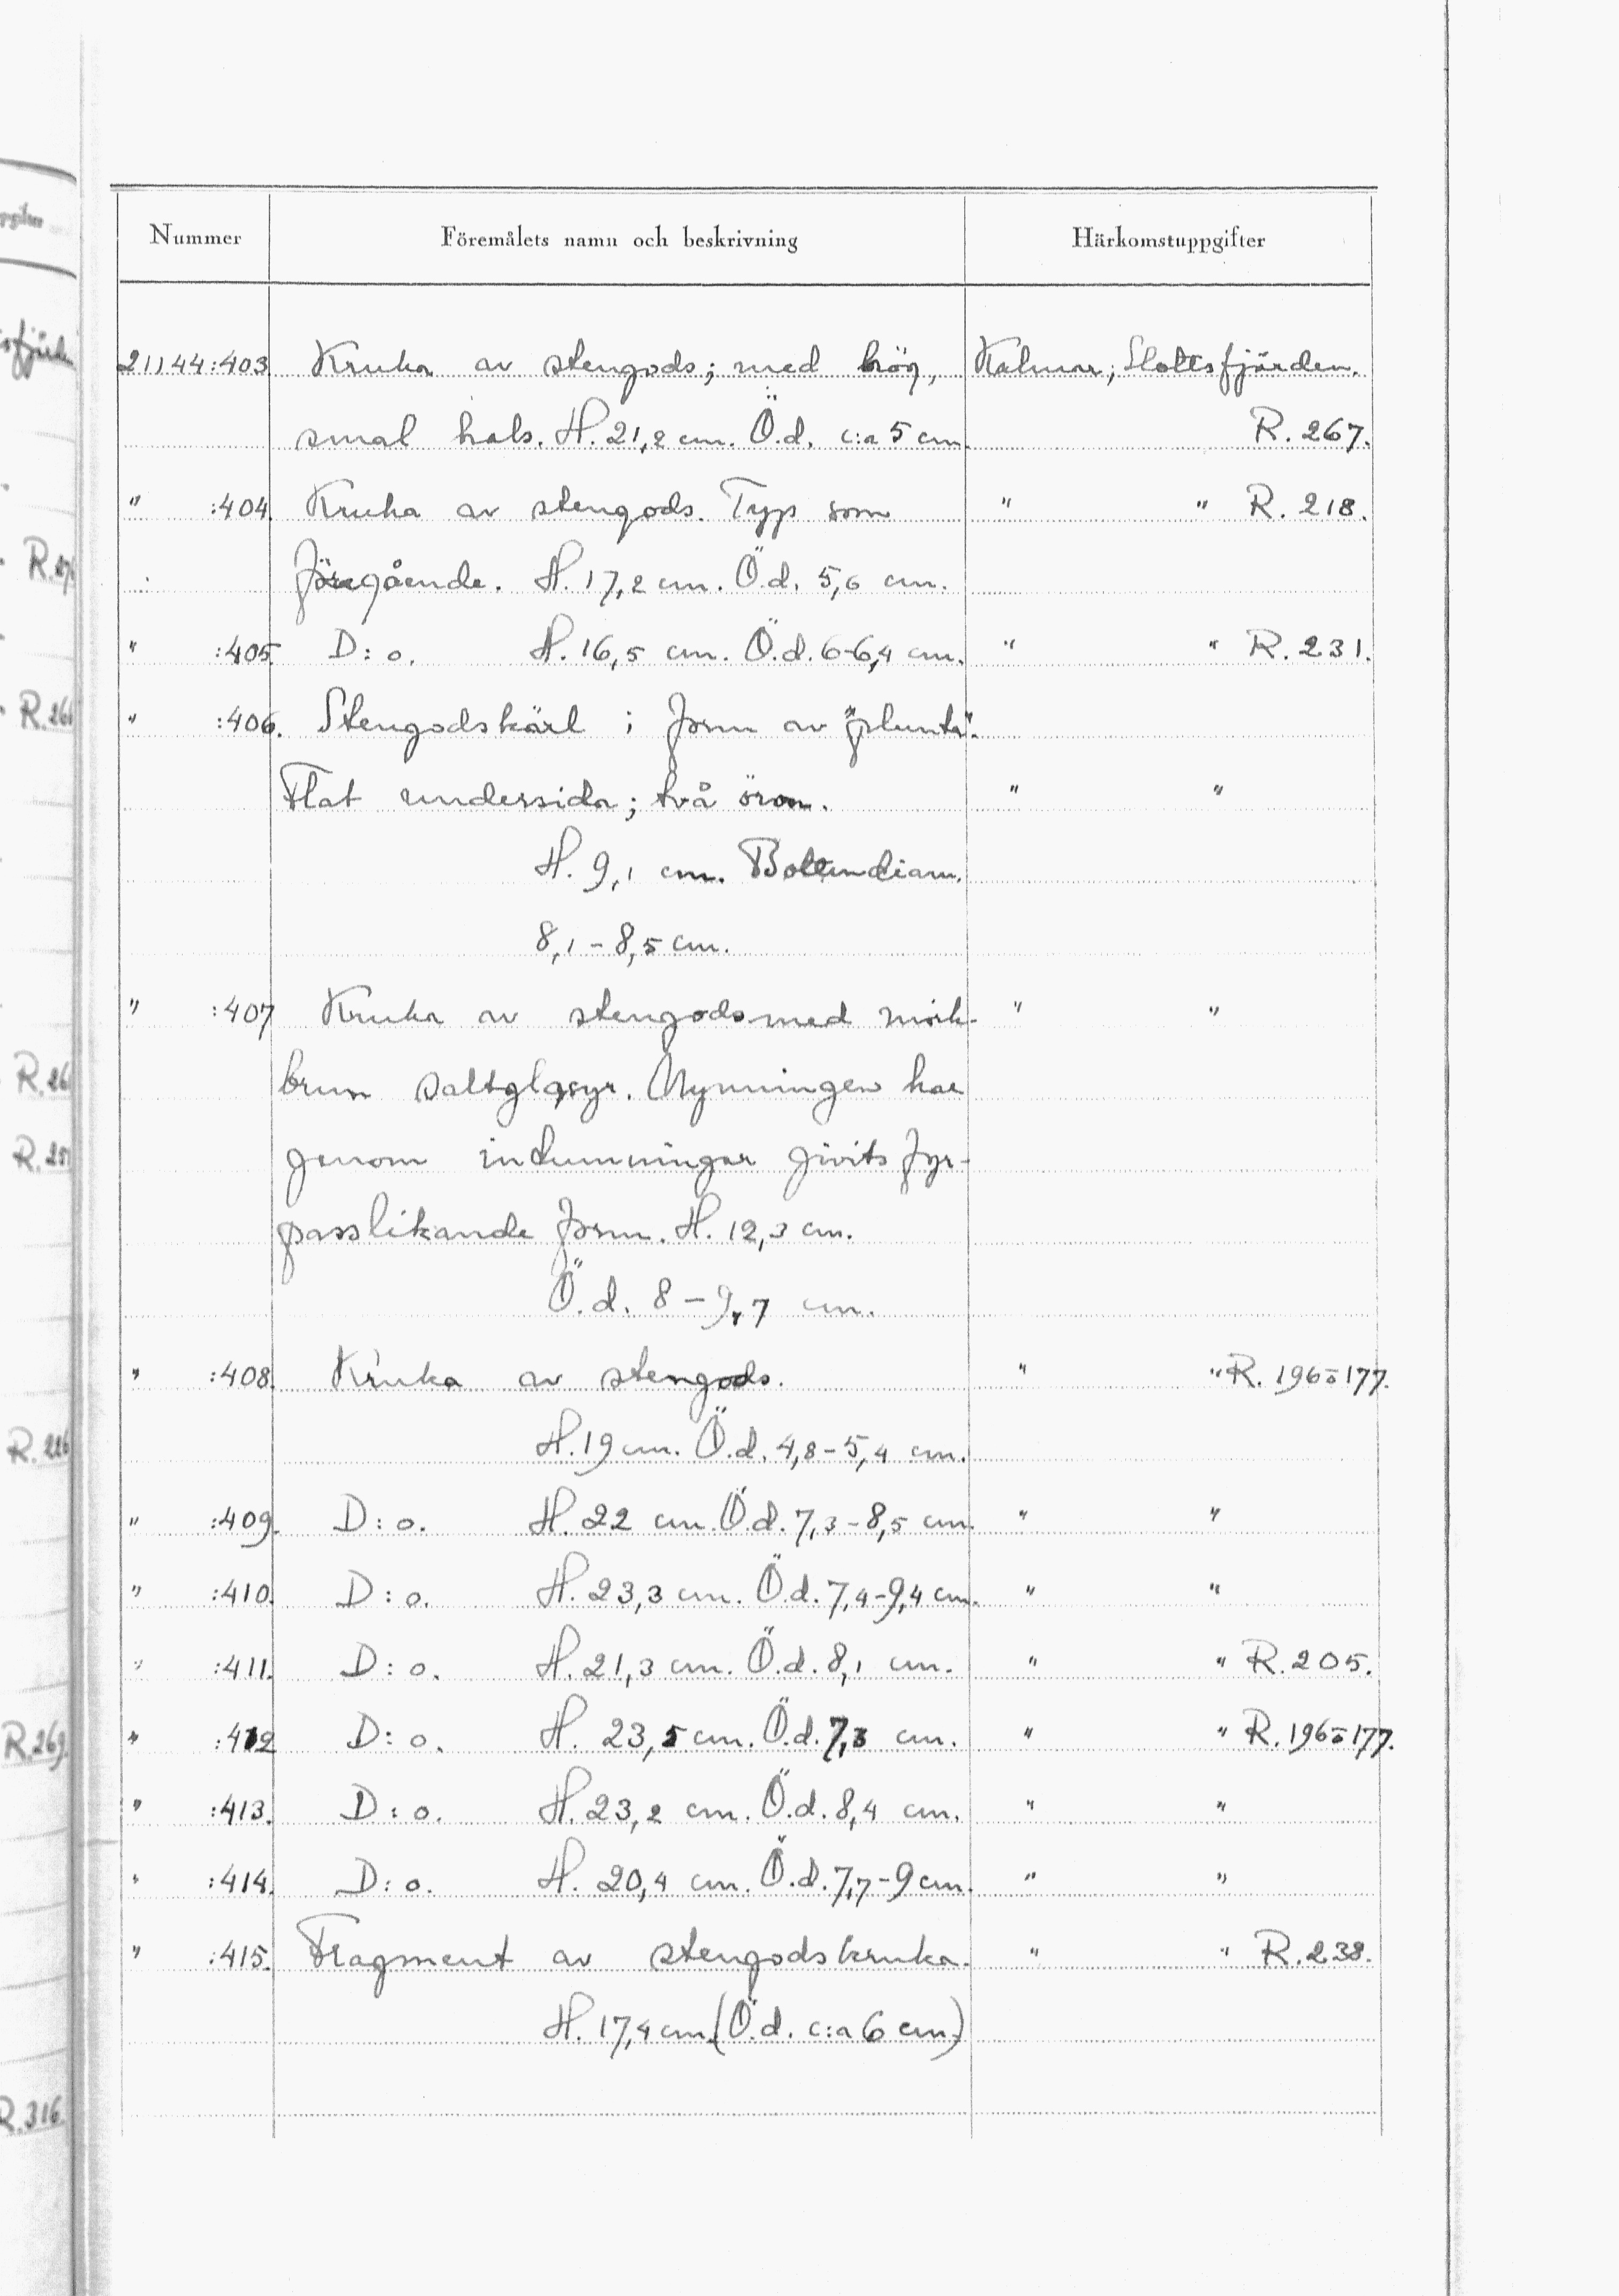 Nummer Föremålets namn och beskrivning Härkomstuppgifter
21144:403. Kruka av stengods; med hög, Kalmar, Slottsfjärden.
smal hals. H. 21,2 cm. Ö.d. c:a 5 cm. R. 267.
" :404. Kruka av stengods. Typ som " " R. 218.
föregående. H. 17,2 cm. Ö.d. 5,6 cm.
" :405. D:o. H. 16,5 cm. Ö.d. 6-6,4 cm. " " R. 231.
" :406. Stengodskärl i form av "plunta".
Flat undersida; två öron. " "
H. 9,1 cm. Bottendiam.
8,1-8,5 cm.
" :407 Kruka av stengods med mörk- " "
brun saltglasyr. Mynningen har
genom intumningar givits fyr-
passlikande form. H. 12,3 cm.
Ö.d. 8-9,7 cm.
" :408. Kruka av stengods. " " R. 196 o 177.
H. 19 cm. Ö.d. 4,8-5,4 cm.
" :409. D:o. H. 22 cm. Ö.d. 7,3-8,5 cm. " "
" :410. D:o. H. 23,3 cm. Ö.d. 7,4-9,4 cm. " "
" :411. D:o. H. 21,3 cm. Ö.d. 8,1 cm. " " R. 205.
" :412 D:o. H. 23,5 cm. Ö.d. 7,3 cm. " " R. 196 o 177.
" :413. D:o. H. 23,2 cm. Ö.d. 8,4 cm. " "
" :414. D:o. H. 20,4 cm. Ö.d. 7,7-9 cm. " "
" :415. Fragment av stengodskruka. " " R. 238.
H. 17,4 cm. (Ö.d. c:a 6 cm.)
R. 269.
R. 316.